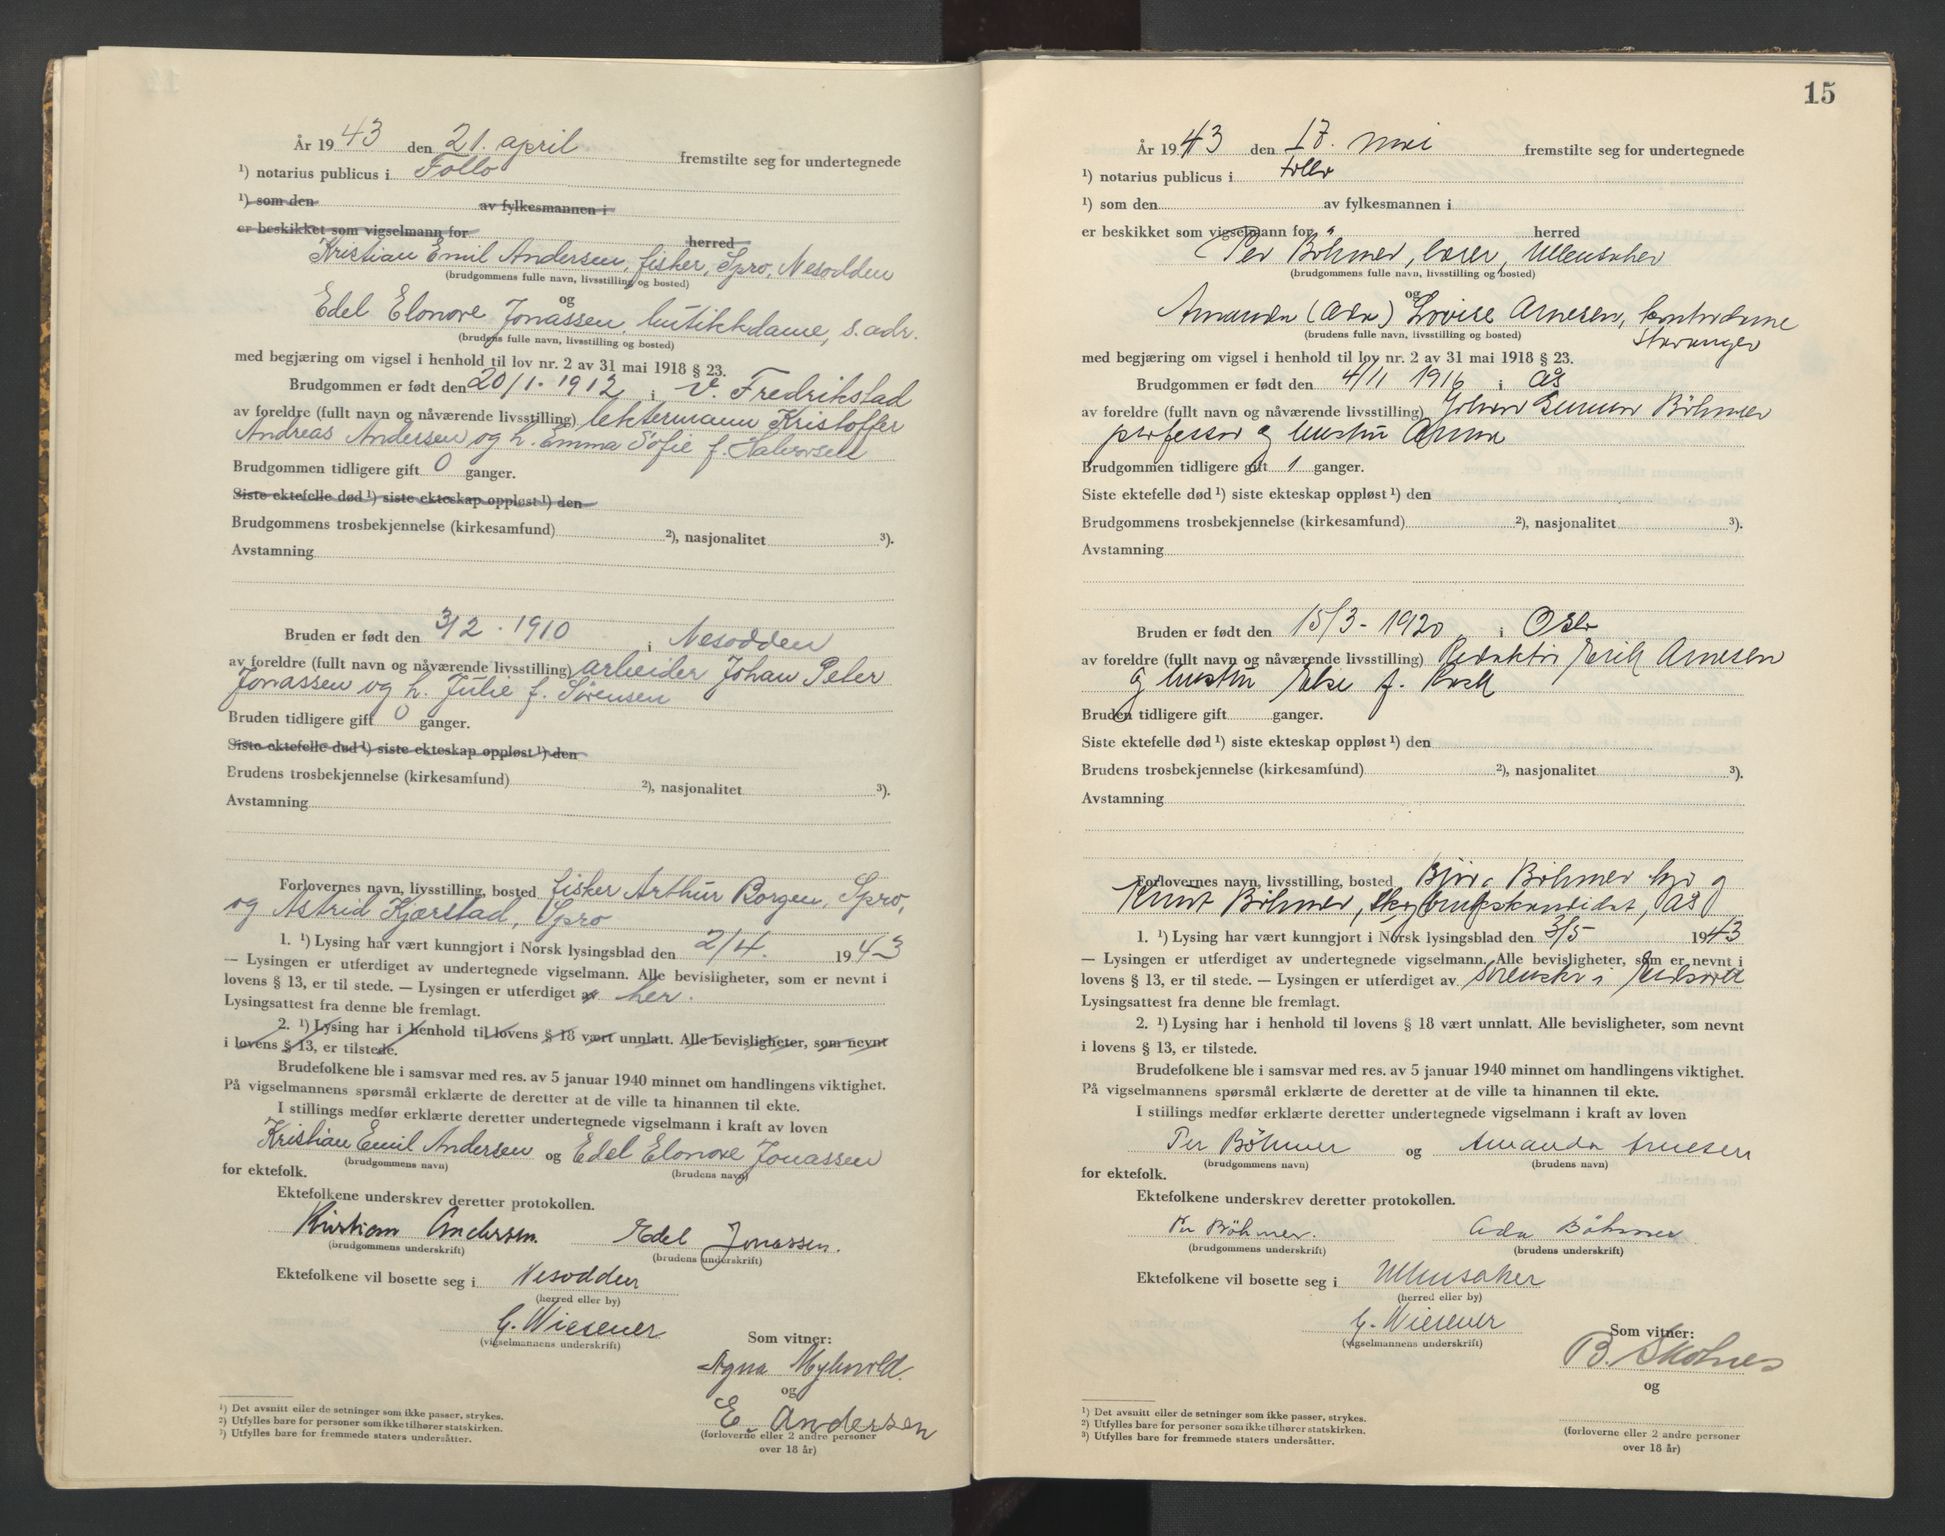 År 1943 den 21. april fremstilte seg for undertegnede
¹) notarius publicus i Follo
¹) som den av fylkesmannen i
er beskikket som vigselmann for herred
Kristian Emil Andersen, fisker, Spro, Nesodden
(brudgommens fulle navn, livsstilling og bosted)
og
Edel Elonore Jonassen, butikkdame, s. adr.
(brudens fulle navn, livsstilling og bosted)
med begjæring om vigsel i henhold til lov nr. 2 av 31 mai 1918 § 23.
Brudgommen er født den 20/1. 1912 i v. Fredrikstad
av foreldre (fullt navn og nåværende livsstilling) lektermann Kristoffer
Andreas Andersen og h. Emma Sofie f. Halvorsen
Brudgommen tidligere gift 0 ganger.
Siste ektefelle død ¹) siste ekteskap oppløst ¹) den
Brudgommens trosbekjennelse (kirkesamfund) ²), nasjonalitet ³).
Avstamning
Bruden er født den 3/2. 1910 i Nesodden
av foreldre (fullt navn og nåværende livsstilling) arbeider Johan Peter
Jonassen og h. Julie f. Sørensen
Bruden tidligere gift 0 ganger.
Siste ektefelle død ¹) siste ekteskap oppløst ¹) den
Brudens trosbekjennelse (kirkesamfund) ²), nasjonalitet ³).
Avstamning
Forlovernes navn, livsstilling, bosted fisker Arthur Borgen, Spro,
og Astrid Kjærstad, Spro
1. ¹) Lysing har vært kunngjort i Norsk lysingsblad den 2/4. 1943
— Lysingen er utferdiget av undertegnede vigselmann. Alle bevisligheter, som er nevnt i
lovens § 13, er til stede. — Lysingen er utferdiget av her.
Lysingsattest fra denne ble fremlagt.
2. ¹) Lysing har i henhold til lovens § 18 vært unnlatt. Alle bevisligheter, som nevnt
i lovens § 13, er tilstede.
Brudefolkene ble i samsvar med res. av 5 januar 1940 minnet om handlingens viktighet.
På vigselmannens spørsmål erklærte de deretter at de ville ta hinannen til ekte.
I stillings medfør erklærte deretter undertegnede vigselmann i kraft av loven
Kristian Emil Andersen og Edel Elonore Jonassen
(brudgommens navn) (brudens navn)
for ektefolk.
Ektefolkene underskrev deretter protokollen.
Kristian Andersen. Edel Jonassen.
(brudgommens underskrift) (brudens underskrift)
Ektefolkene vil bosette seg i Nesodden
(herred eller by)
G. Wiesener
(vigselmannens underskrift)
Som vitner:
Agna Myhrvold.
og
E. Andersen
(forloverne eller 2 andre personer
over 18 år)
¹) Det avsnitt eller de setninger som ikke passer, strykes.
²) Utfylles bare for personer som ikke tilhører statskirken.
³) Utfylles bare for fremmede staters undersåtter.
15
År 1943 den 17. mai fremstilte seg for undertegnede
¹) notarius publicus i Follo
¹) som den av fylkesmannen i
er beskikket som vigselmann for herred
Per Böhmer, lærer, Ullensaker
(brudgommens fulle navn, livsstilling og bosted)
og
Amanda (Ada) Lovise Arnesen, kontordame
Stavanger
(brudens fulle navn, livsstilling og bosted)
med begjæring om vigsel i henhold til lov nr. 2 av 31 mai 1918 § 23.
Brudgommen er født den 4/11 1916 i Ås
av foreldre (fullt navn og nåværende livsstilling) Johan Gunnar Böhmer
professor og hustru Anna
Brudgommen tidligere gift 1 ganger.
Siste ektefelle død ¹) siste ekteskap oppløst ¹) den
Brudgommens trosbekjennelse (kirkesamfund) ²), nasjonalitet ³).
Avstamning
Bruden er født den 15/3 - 1920 i Oslo
av foreldre (fullt navn og nåværende livsstilling) Redaktør Erik Arnesen
og hustru Else f.
Bruden tidligere gift ganger.
Siste ektefelle død ¹) siste ekteskap oppløst ¹) den
Brudens trosbekjennelse (kirkesamfund) ²), nasjonalitet ³).
Avstamning
Forlovernes navn, livsstilling, bosted Böhmer og
Knut Böhmer, skogbrukskandidat, Ås
1. ¹) Lysing har vært kunngjort i Norsk lysingsblad den 3/5 1943
— Lysingen er utferdiget av undertegnede vigselmann. Alle bevisligheter, som er nevnt i
lovens § 13, er til stede. — Lysingen er utferdiget av sorenskr i Eidsvoll
Lysingsattest fra denne ble fremlagt.
2. ¹) Lysing har i henhold til lovens § 18 vært unnlatt. Alle bevisligheter, som nevnt
i lovens § 13, er tilstede.
Brudefolkene ble i samsvar med res. av 5 januar 1940 minnet om handlingens viktighet.
På vigselmannens spørsmål erklærte de deretter at de ville ta hinannen til ekte.
I stillings medfør erklærte deretter undertegnede vigselmann i kraft av loven
Per Böhmer og Amanda Arnesen
(brudgommens navn) (brudens navn)
for ektefolk.
Ektefolkene underskrev deretter protokollen.
Per Böhmer. Ada Böhmer
(brudgommens underskrift) (brudens underskrift)
Ektefolkene vil bosette seg i Ullensaker
(herred eller by)
G. Wiesener
(vigselmannens underskrift)
Som vitner:
B. Skolnes
og
(forloverne eller 2 andre personer
over 18 år)
¹) Det avsnitt eller de setninger som ikke passer, strykes.
²) Utfylles bare for personer som ikke tilhører statskirken.
³) Utfylles bare for fremmede staters undersåtter.